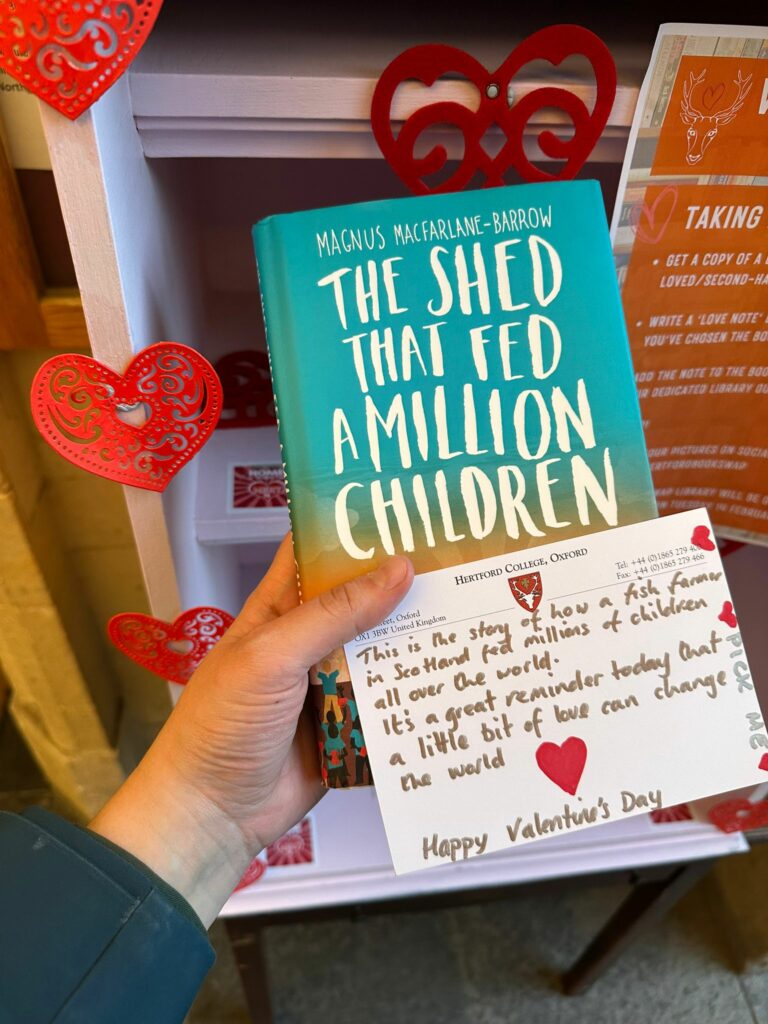 MAGNUS MACFARLANE-BARROW
THE SHED
THAT FED
A MILLION
CHILDREN
HERTFORD COLLEGE, OXFORD
Street, Oxford
OX1 3BW United Kingdom
Tel: +44 (0)1865 279
Fax: +44 (0)1865 279 466
This is the story of how a fish farmer
in Scotland fed millions of children
all over the world.
It's a great reminder today that
a little bit of love can change
the world
Happy Valentine's Day
PICK ME
TAKING
• GET A COPY OF A
LOVED/SECOND-HA
• WRITE A 'LOVE NOTE'
YOU'VE CHOSEN THE BO
ADD THE NOTE TO THE BOO
DEDICATED LIBRARY
OUR PICTURES ON SOCIA
LIBRARY WILL BE
TUESDAY 14 FEBRUAR
North